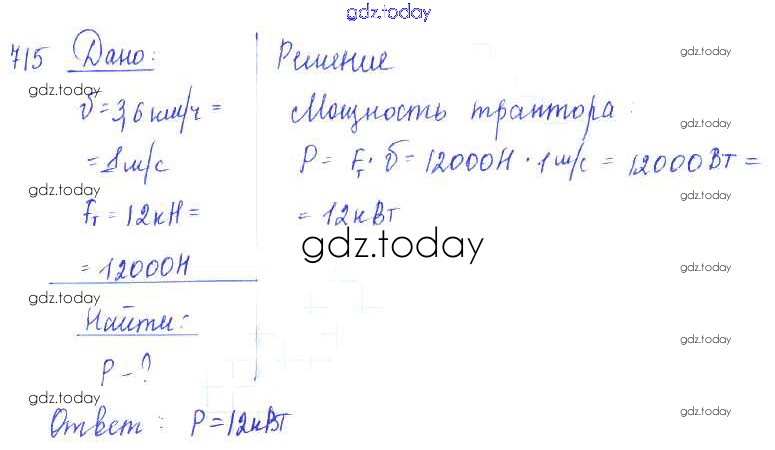 gdz.today
715 Дано:
υ = 3,6 км/ч =
= 1 м/с
Fт = 12 кН =
= 12000Н
Найти:
P - ?
Решение
Мощность трактора:
P = Fт · υ = 12000Н · 1 м/с = 12000Вт =
= 12кВт
Ответ: P = 12кВт
gdz.today
gdz.today
gdz.today
gdz.today
gdz.today
gdz.today
gdz.today
gdz.today
gdz.today
gdz.today
gdz.today